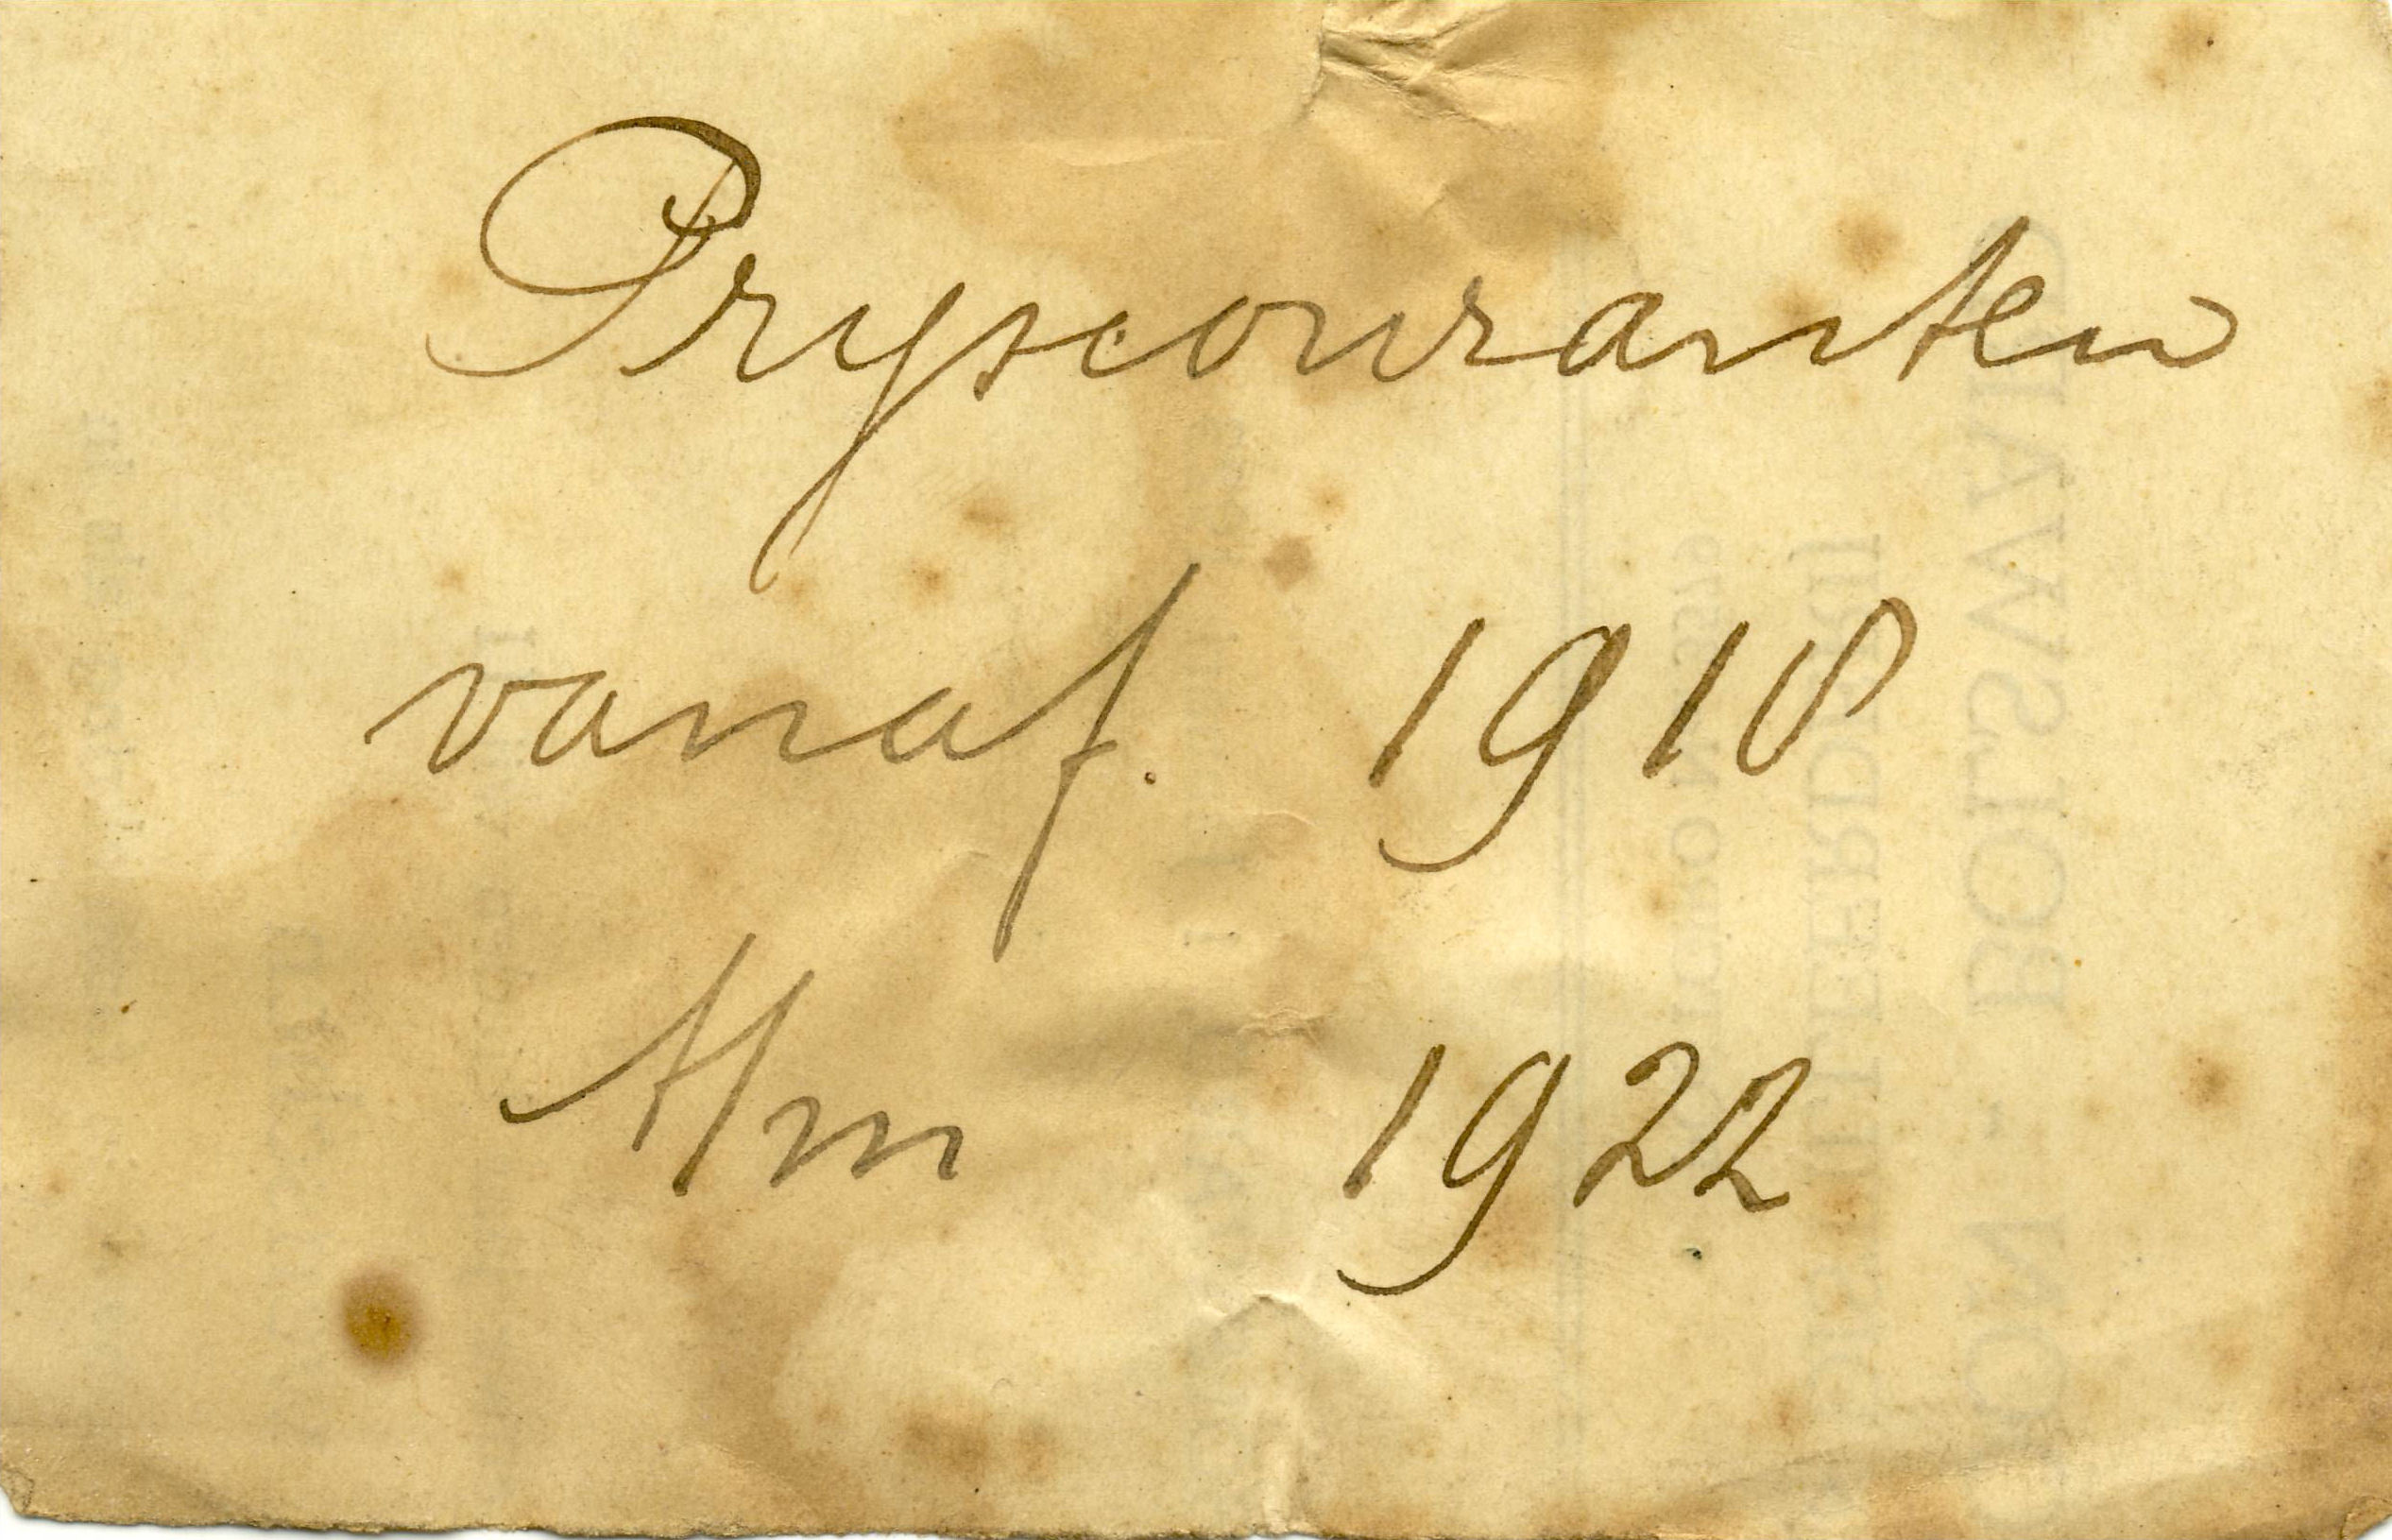 Pryscouranten
vanaf. 1918
t/m 1922